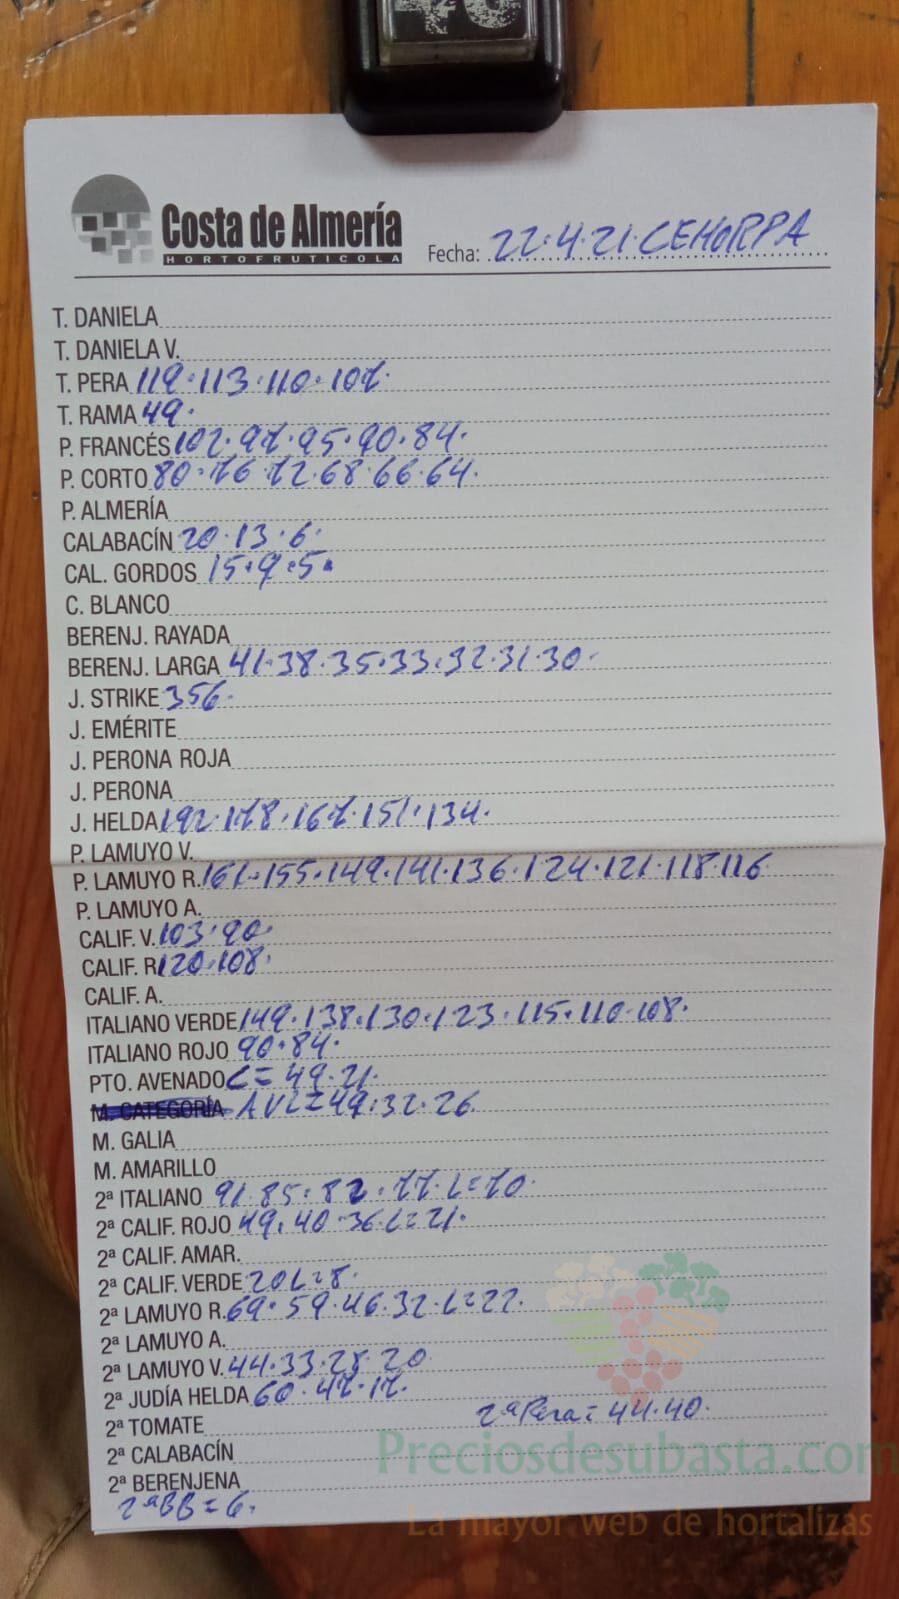 Costa de Almería
HORTOFRUTICOLA
Fecha: 22.4.21.CEHORPA
T. DANIELA
T. DANIELA V.
T. PERA 119.113.110.107.
T. RAMA 49.
P. FRANCÉS 102.97.95.90.84.
P. CORTO 80.76.72.68.66.64.
P. ALMERÍA
CALABACÍN 20.13.6.
CAL. GORDOS 15.9.5.
C. BLANCO
BERENJ. RAYADA
BERENJ. LARGA 41.38.35.33.32.31.30.
J. STRIKE 356.
J. EMÉRITE
J. PERONA ROJA
J. PERONA
J. HELDA 192.178.167.151.134.
P. LAMUYO V.
P. LAMUYO R. 161.155.149.141.136.124.121.118.116
P. LAMUYO A.
CALIF. V. 103.90.
CALIF. R 120.108.
CALIF. A.
ITALIANO VERDE 149.138.130.123.115.110.108.
ITALIANO ROJO 90.84.
PTO. AVENADO C=49.21.
M. CATEGORÍA AVL=49.32.26
M. GALIA
M. AMARILLO
2ª ITALIANO 91.85.82.77.L=70.
2ª CALIF. ROJO 49.40.36.L=21.
2ª CALIF. AMAR.
2ª CALIF. VERDE 20 L=8.
2ª LAMUYO R. 69.59.46.32.L=22.
2ª LAMUYO A.
2ª LAMUYO V. 44.33.28.20
2ª JUDÍA HELDA 60.47.17.
2ª TOMATE 2ª Pera=44.40.
2ª CALABACÍN
2ª BERENJENA
2ªBB=6.
Preciosdesubasta.com
La mayor web de hortalizas